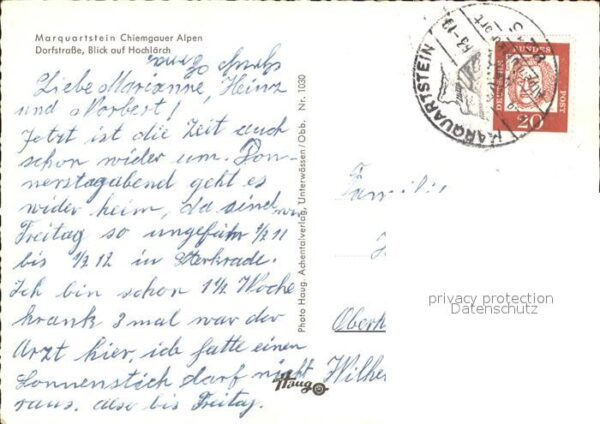 Marquartstein Chiemgauer Alpen
Dorfstraße, Blick auf Hochlärch
Liebe Marianne, Heinz
und Norbert!
Jetzt ist die Zeit auch
schon wider um. Don-
nerstagabend geht es
wider heim, da sind wir
Freitag so ungefähr 1/2 11
bis 1/2 12 in Sterkrade.
Ich bin schon 1 1/2 Woche
krank 3 mal war der
Arzt hier, ich hatte einen
Sonnenstich darf nicht
raus. also bis Freitag.
Photo Haug, Achentalverlag, Unterwössen/Obb. Nr. 1030
Haug
MARQUARTSTEIN
DEUTSCHE BUNDESPOST
20
Familie
Oberh
Wilhe
privacy protection
Datenschutz